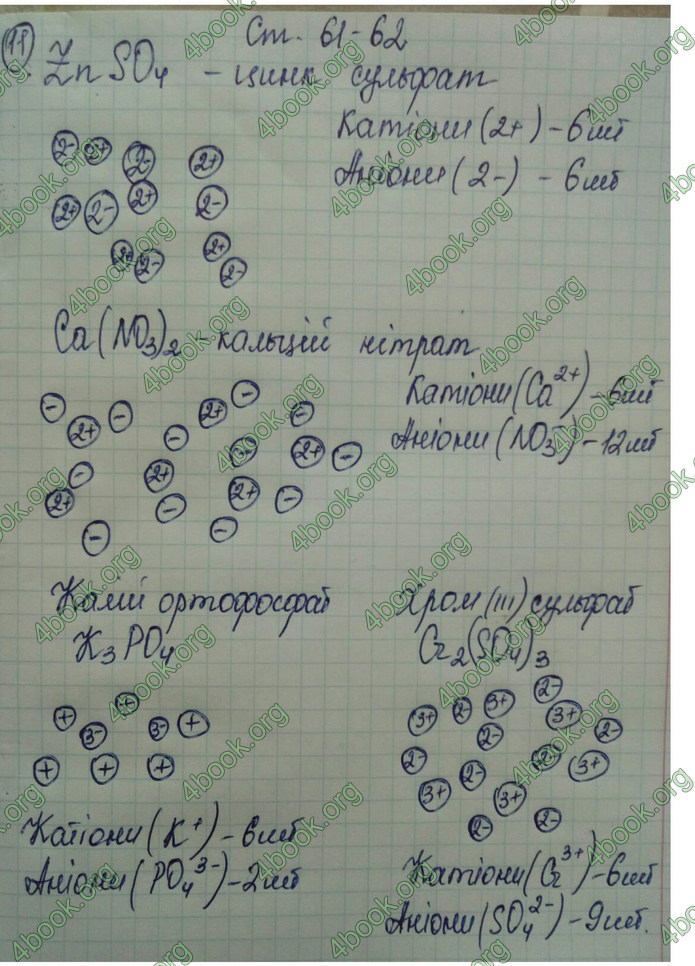 Ст. 61-62
11. ZnSO4 - цинк сульфат
Катіони (2+) - 6шт
Аніони (2-) - 6шт
2- 2+ 2- 2+
2+ 2- 2+ 2-
2+ 2- 2+ 2-
Ca(NO3)2 - кальцій нітрат
Катіони (Ca2+) - 6шт
Аніони (NO3-) - 12шт
- 2+ - - 2+ - -
- 2+ - 2+ - 2+ -
2+ - - - -
Калій ортофосфат
K3PO4
+ + 3- 3- +
+ + +
Катіони (K+) - 6шт
Аніони (PO4 3-) - 2шт
Хром (III) сульфат
Cr2(SO4)3
3+ 2- 3+ 2- 3+
2- 2- 2- 2- 3+
3+ 2- 3+ 2- 2-
Катіони (Cr3+) - 6шт
Аніони (SO4 2-) - 9шт.
4book.org